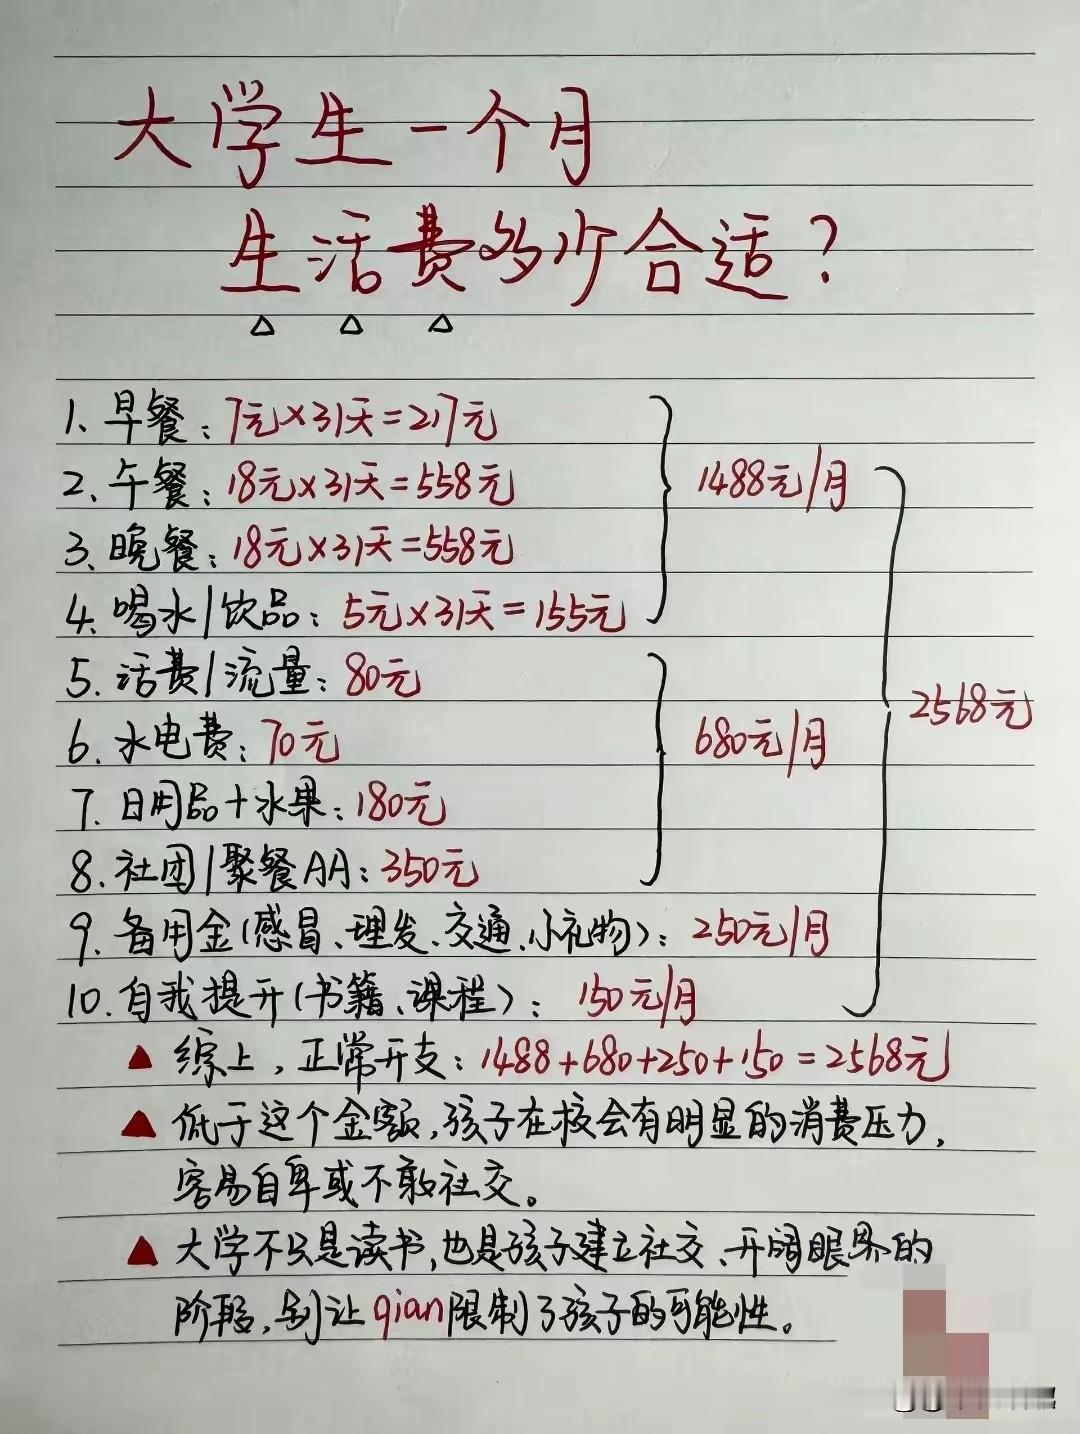 大学生一个月
生活费多少合适?
△ △ △
1、早餐:7元×31天=217元
2、午餐:18元×31天=558元
3、晚餐:18元×31天=558元
4、喝水/饮品:5元×31天=155元
1488元/月
5、活费/流量:80元
6、水电费:70元
7、日用品+水果:180元
8、社团/聚餐AA:350元
680元/月
9、备用金(感冒、理发、交通、小礼物):250元/月
10、自我提升(书籍、课程):150元/月
2568元
▲ 综上,正常开支:1488+680+250+150=2568元
▲ 低于这个金额,孩子在校会有明显的消费压力,
容易自卑或不敢社交。
▲ 大学不只是读书,也是孩子建立社交、开阔眼界的
阶段,别让qian限制了孩子的可能性。